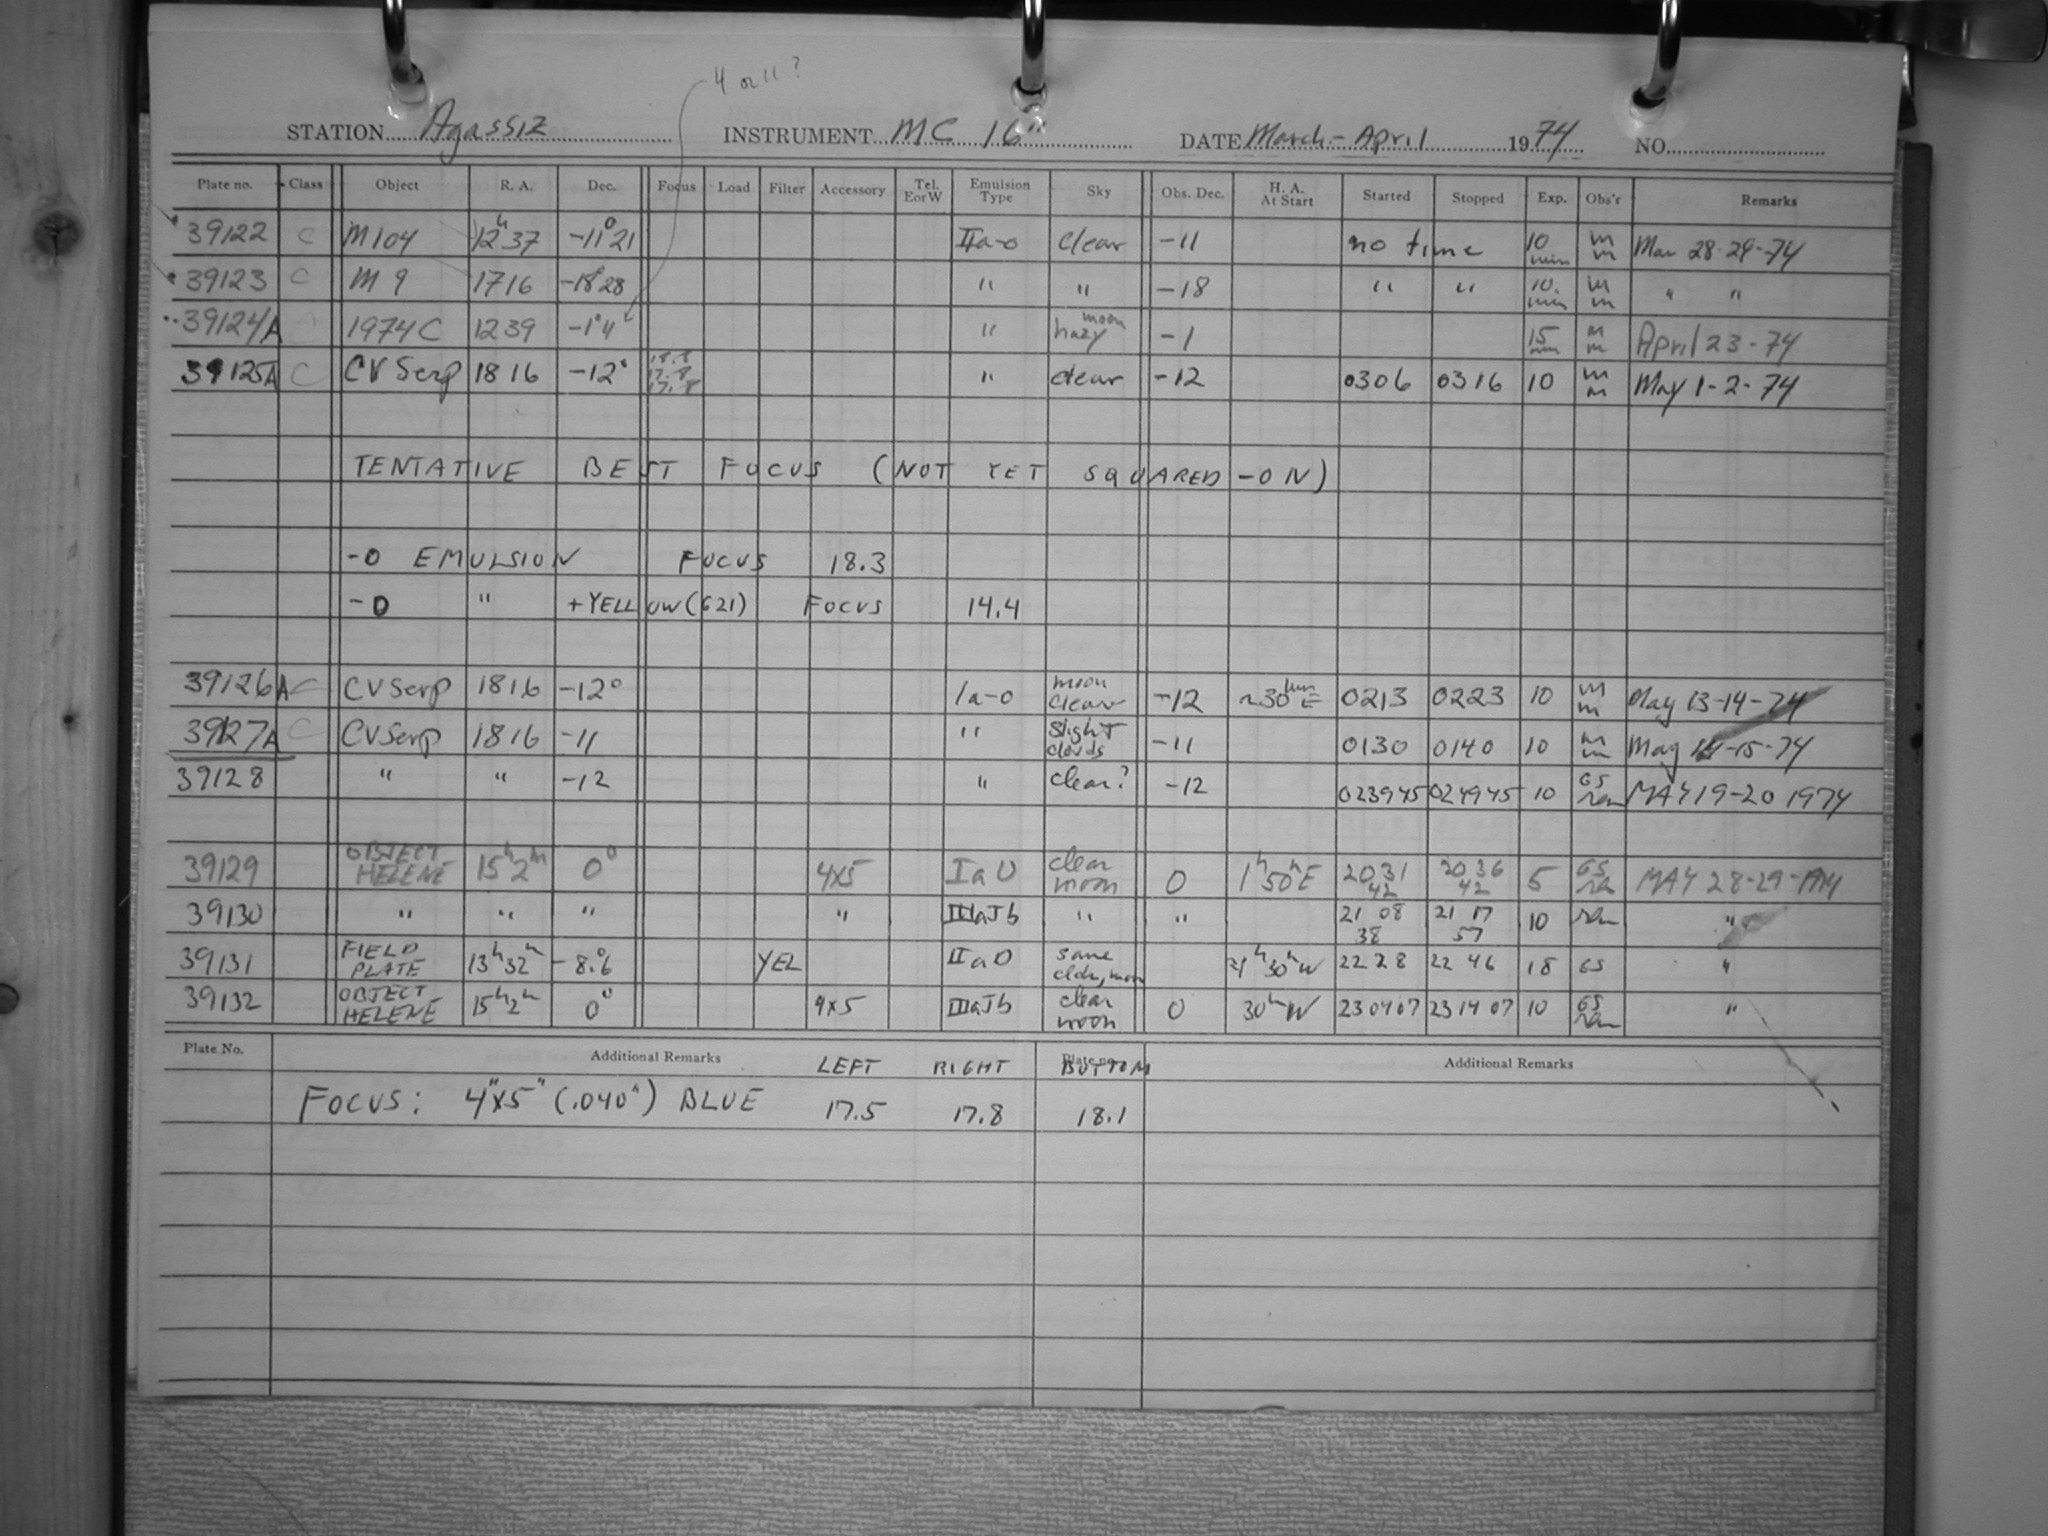 4 or 11?
STATION Agassiz INSTRUMENT MC 16" DATE March-April 1974 NO.
Plate no. Class Object R. A. Dec. Focus Load Filter Accessory Tel. E or W Emulsion Type Sky Obs. Dec. H. A. At Start Started Stopped Exp. Obs'r Remarks
39122 C M104 12h 37 -11° 21 IIa-o clear -11 no time 10 min m m Mar 28-29-74
39123 C M 9 1716 -18° 28 " " -18 " " 10. min m m " "
39124A C 1974C 1239 -1° 4 " moon hazy -1 15 min m m April 23-74
39125A C CV Serp 1816 -12° 17.8 17.8 " clear -12 0306 0316 10 m m May 1-2-74
TENTATIVE BEST FOCUS (NOT YET SQUARED-ON)
-O EMULSION FOCUS 18.3
-D " + YELLOW (G21) FOCUS 14.4
39126A C CV Serp 1816 -12° Ia-o moon clear -12 ~30 E 0213 0223 10 m m May 13-14-74
39127A C CV Serp 1816 -11 " slight clouds -11 0130 0140 10 m m May 14-15-74
39128 " " -12 " clear? -12 023945 024945 10 GS MAY 19-20 1974
39129 OBJECT HELENE 15h 2m 0° 4x5 IaO clear moon 0 1h 50m E 20 31 42 20 36 42 5 GS MAY 28-29
39130 " " " " IIIaJb " " 21 08 38 21 17 57 10 "
39131 FIELD PLATE 13h 32m -8.°6 YEL IIaD some cldr, moon 30m W 22 28 22 46 18 GS "
39132 OBJECT HELENE 15h 2m 0° 4x5 IIIaJb clear moon 0 30m W 230407 231407 10 GS "
Plate No. Additional Remarks LEFT RIGHT Plate no. BOTTOM Additional Remarks
FOCUS: 4"x5" (.040") BLUE 17.5 17.8 18.1